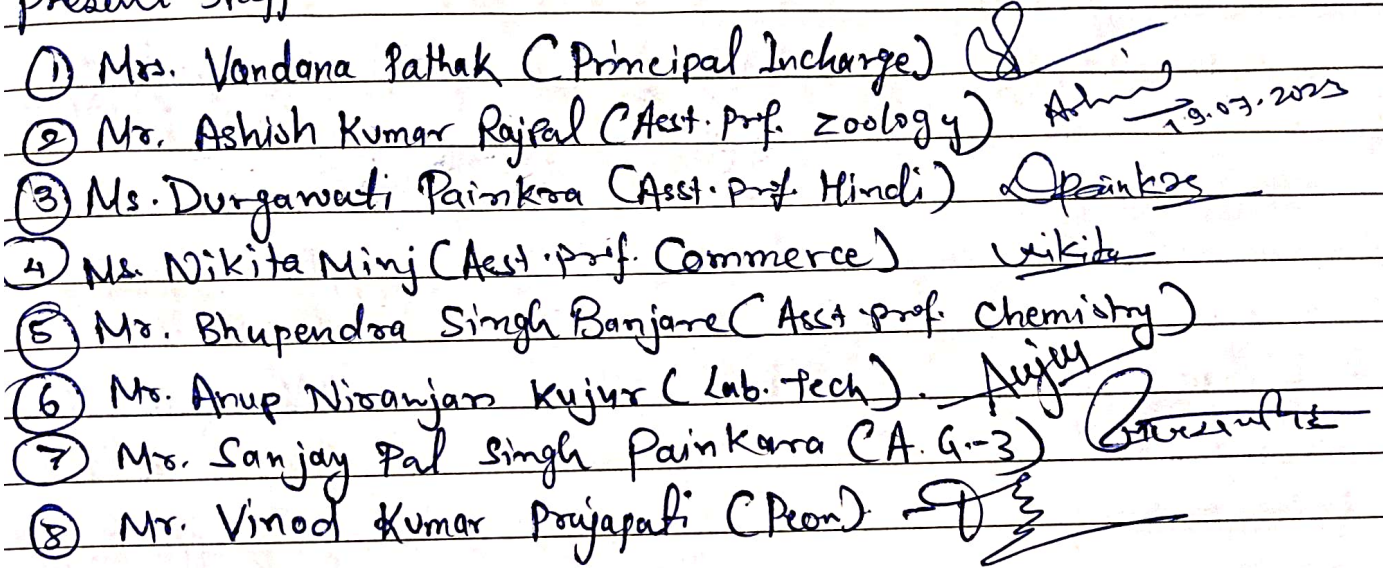 Present Staff
① Mrs. Vandana Pathak (Principal Incharge)
② Mr. Ashish Kumar Rajpal (Asst. Prof. Zoology) Ashis 19.07.2023
③ Ms. Durgawati Painkra (Asst. Prof. Hindi) Dpainkra
④ Ms. Nikita Minj (Asst. Prof. Commerce) Nikita
⑤ Mr. Bhupendra Singh Banjare (Asst. Prof. Chemistry)
⑥ Mr. Anup Niranjan Kujur (Lab. Tech).
⑦ Mr. Sanjay Pal Singh Painkara (A.G.-3)
⑧ Mr. Vinod Kumar Prajapati (Peon)